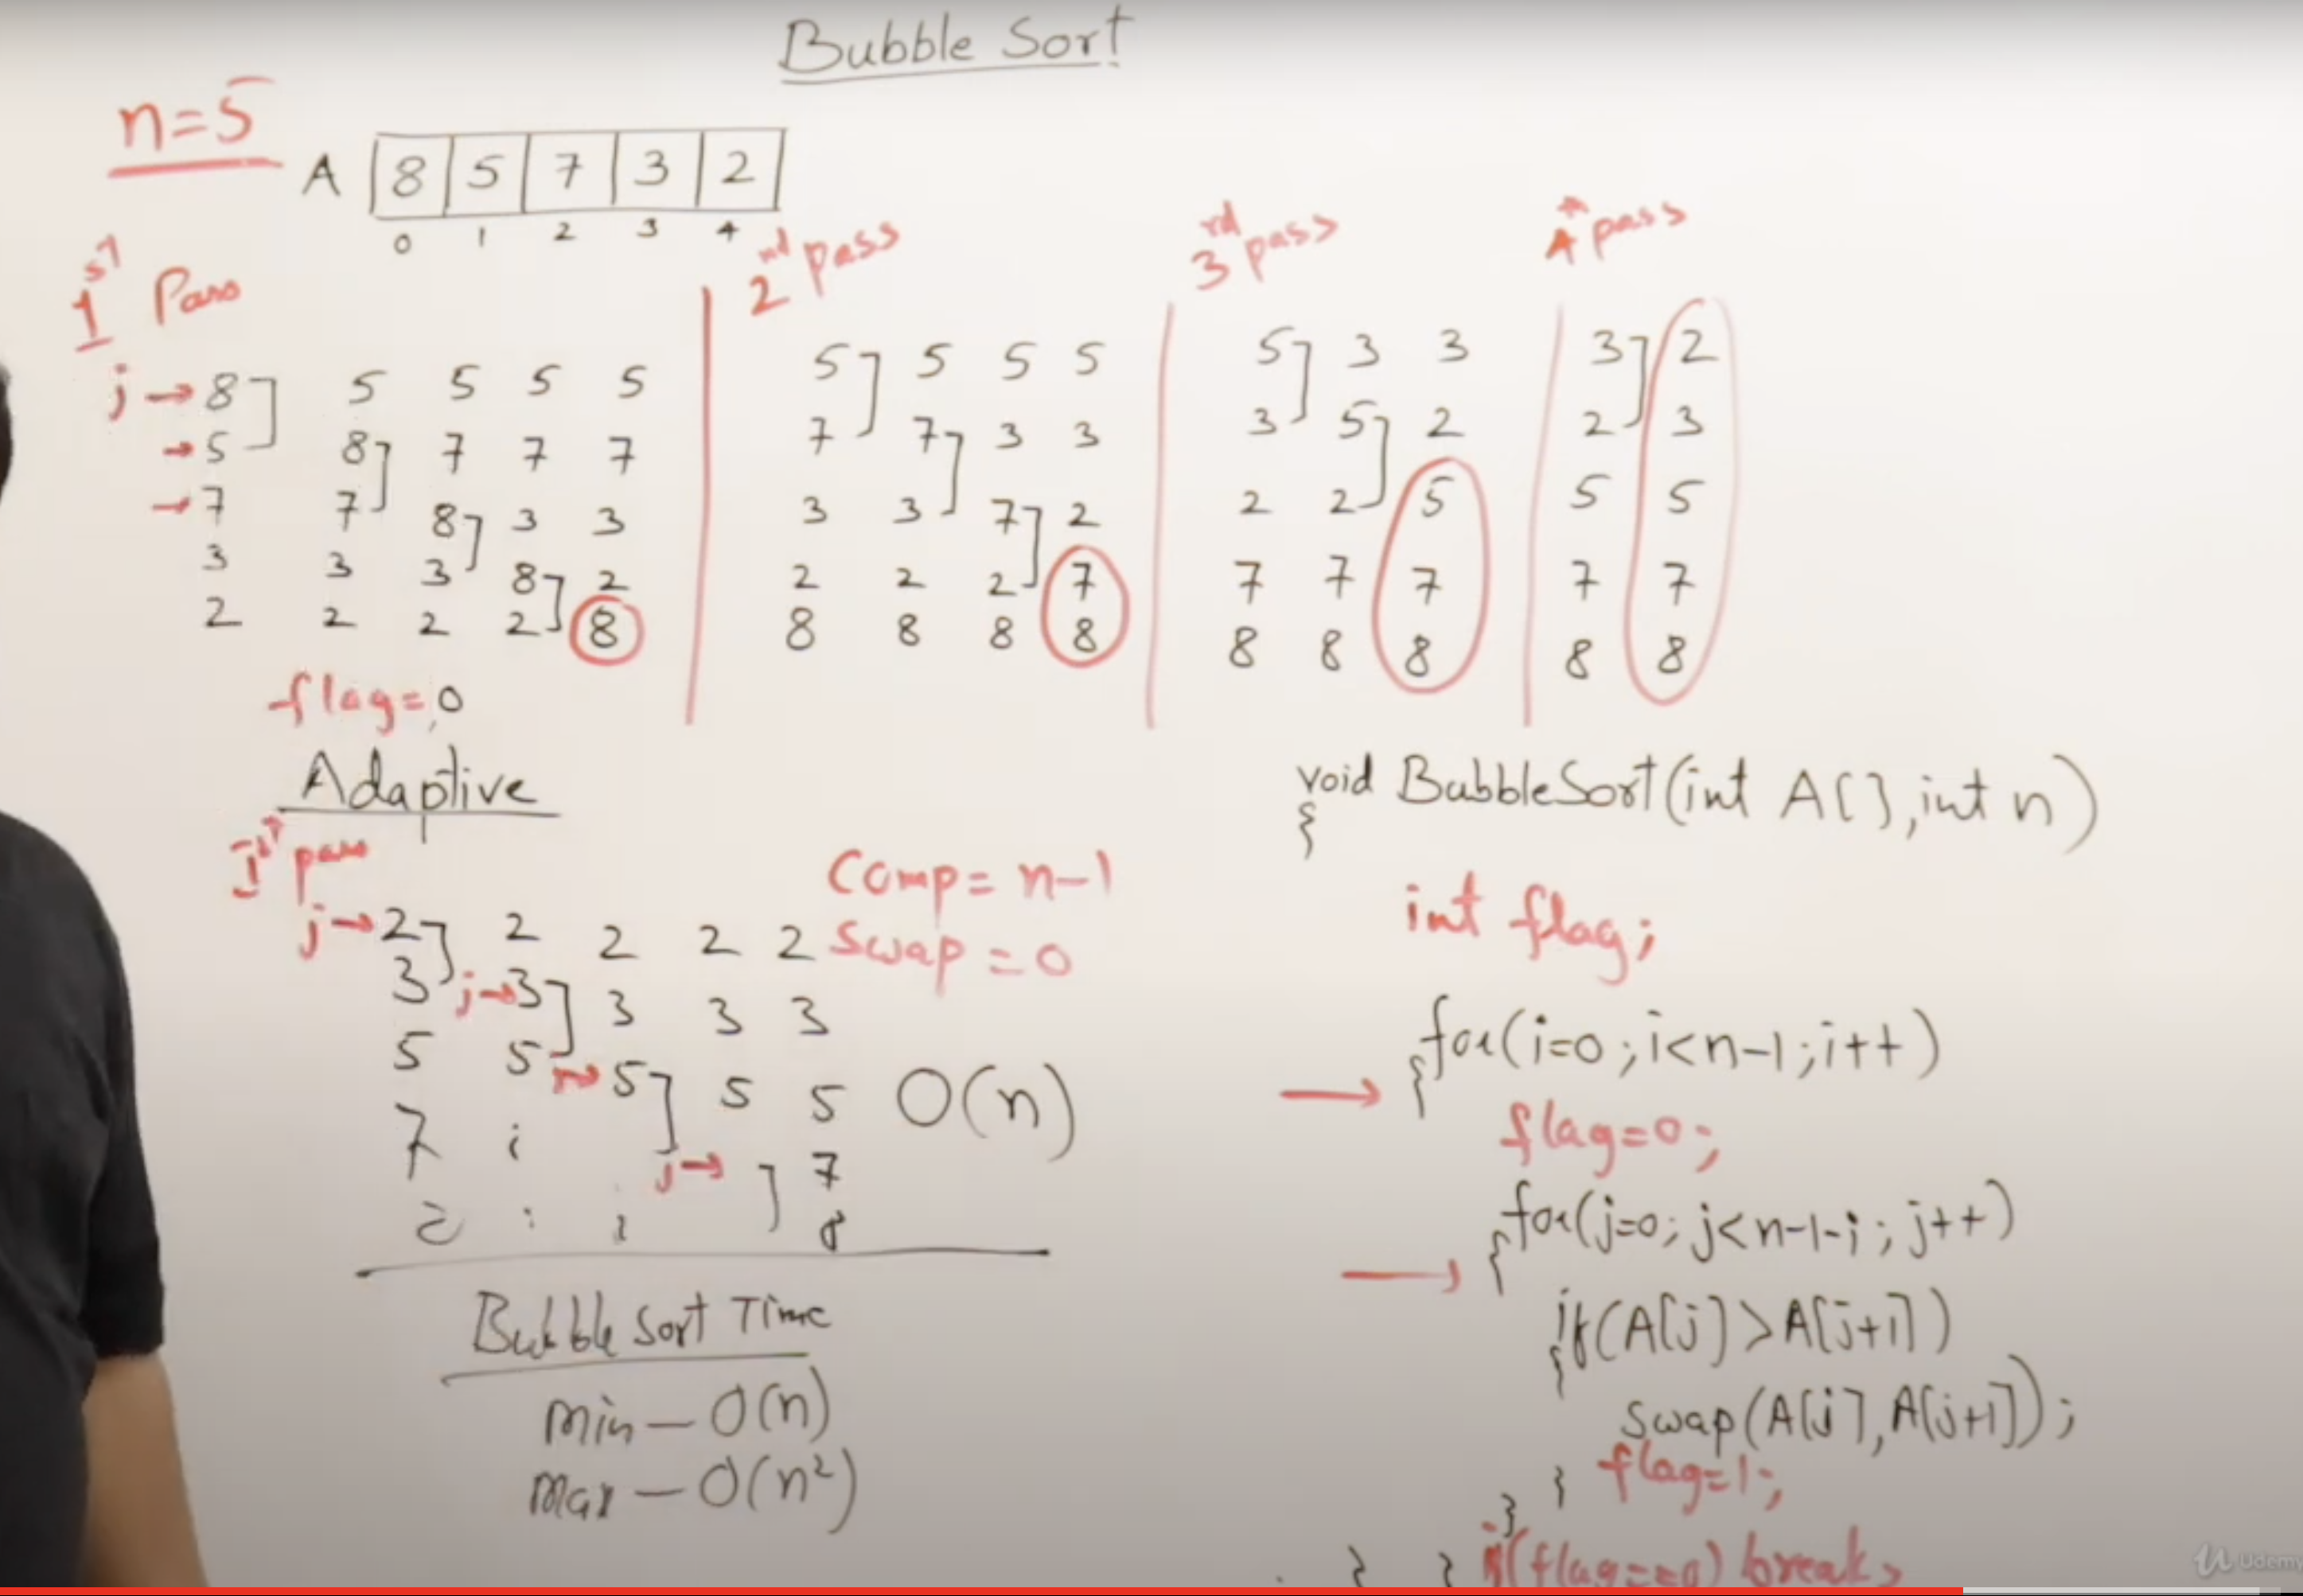 Bubble Sort
n=5
A 8 5 7 3 2
0 1 2 3 4
1st Pass
j→ 8 5 5 5 5
→ 5 8 7 7 7
→ 7 7 8 3 3
3 3 3 8 2
2 2 2 2 8
2nd pass
5 5 5 5
7 7 3 3
3 3 7 2
2 2 2 7
8 8 8 8
3rd pass
5 3 3
3 5 2
2 2 5
7 7 7
8 8 8
4th pass
3 2
2 3
5 5
7 7
8 8
flag=0
Adaptive
1st pass
j→ 2 2 2 2 2
3 j→3 3 3 3
5 5 → 5 5 5
7 j→ 7
8
Comp = n-1
Swap = 0
O(n)
Bubble Sort Time
min — O(n)
max — O(n²)
void BubbleSort(int A[], int n)
{
int flag;
for(i=0; i<n-1; i++)
→ {
flag=0;
for(j=0; j<n-1-i; j++)
→ {
if(A[j]>A[j+1])
{
swap(A[j], A[j+1]);
flag=1;
}
}
if(flag==0) break;
}
}
Udemy